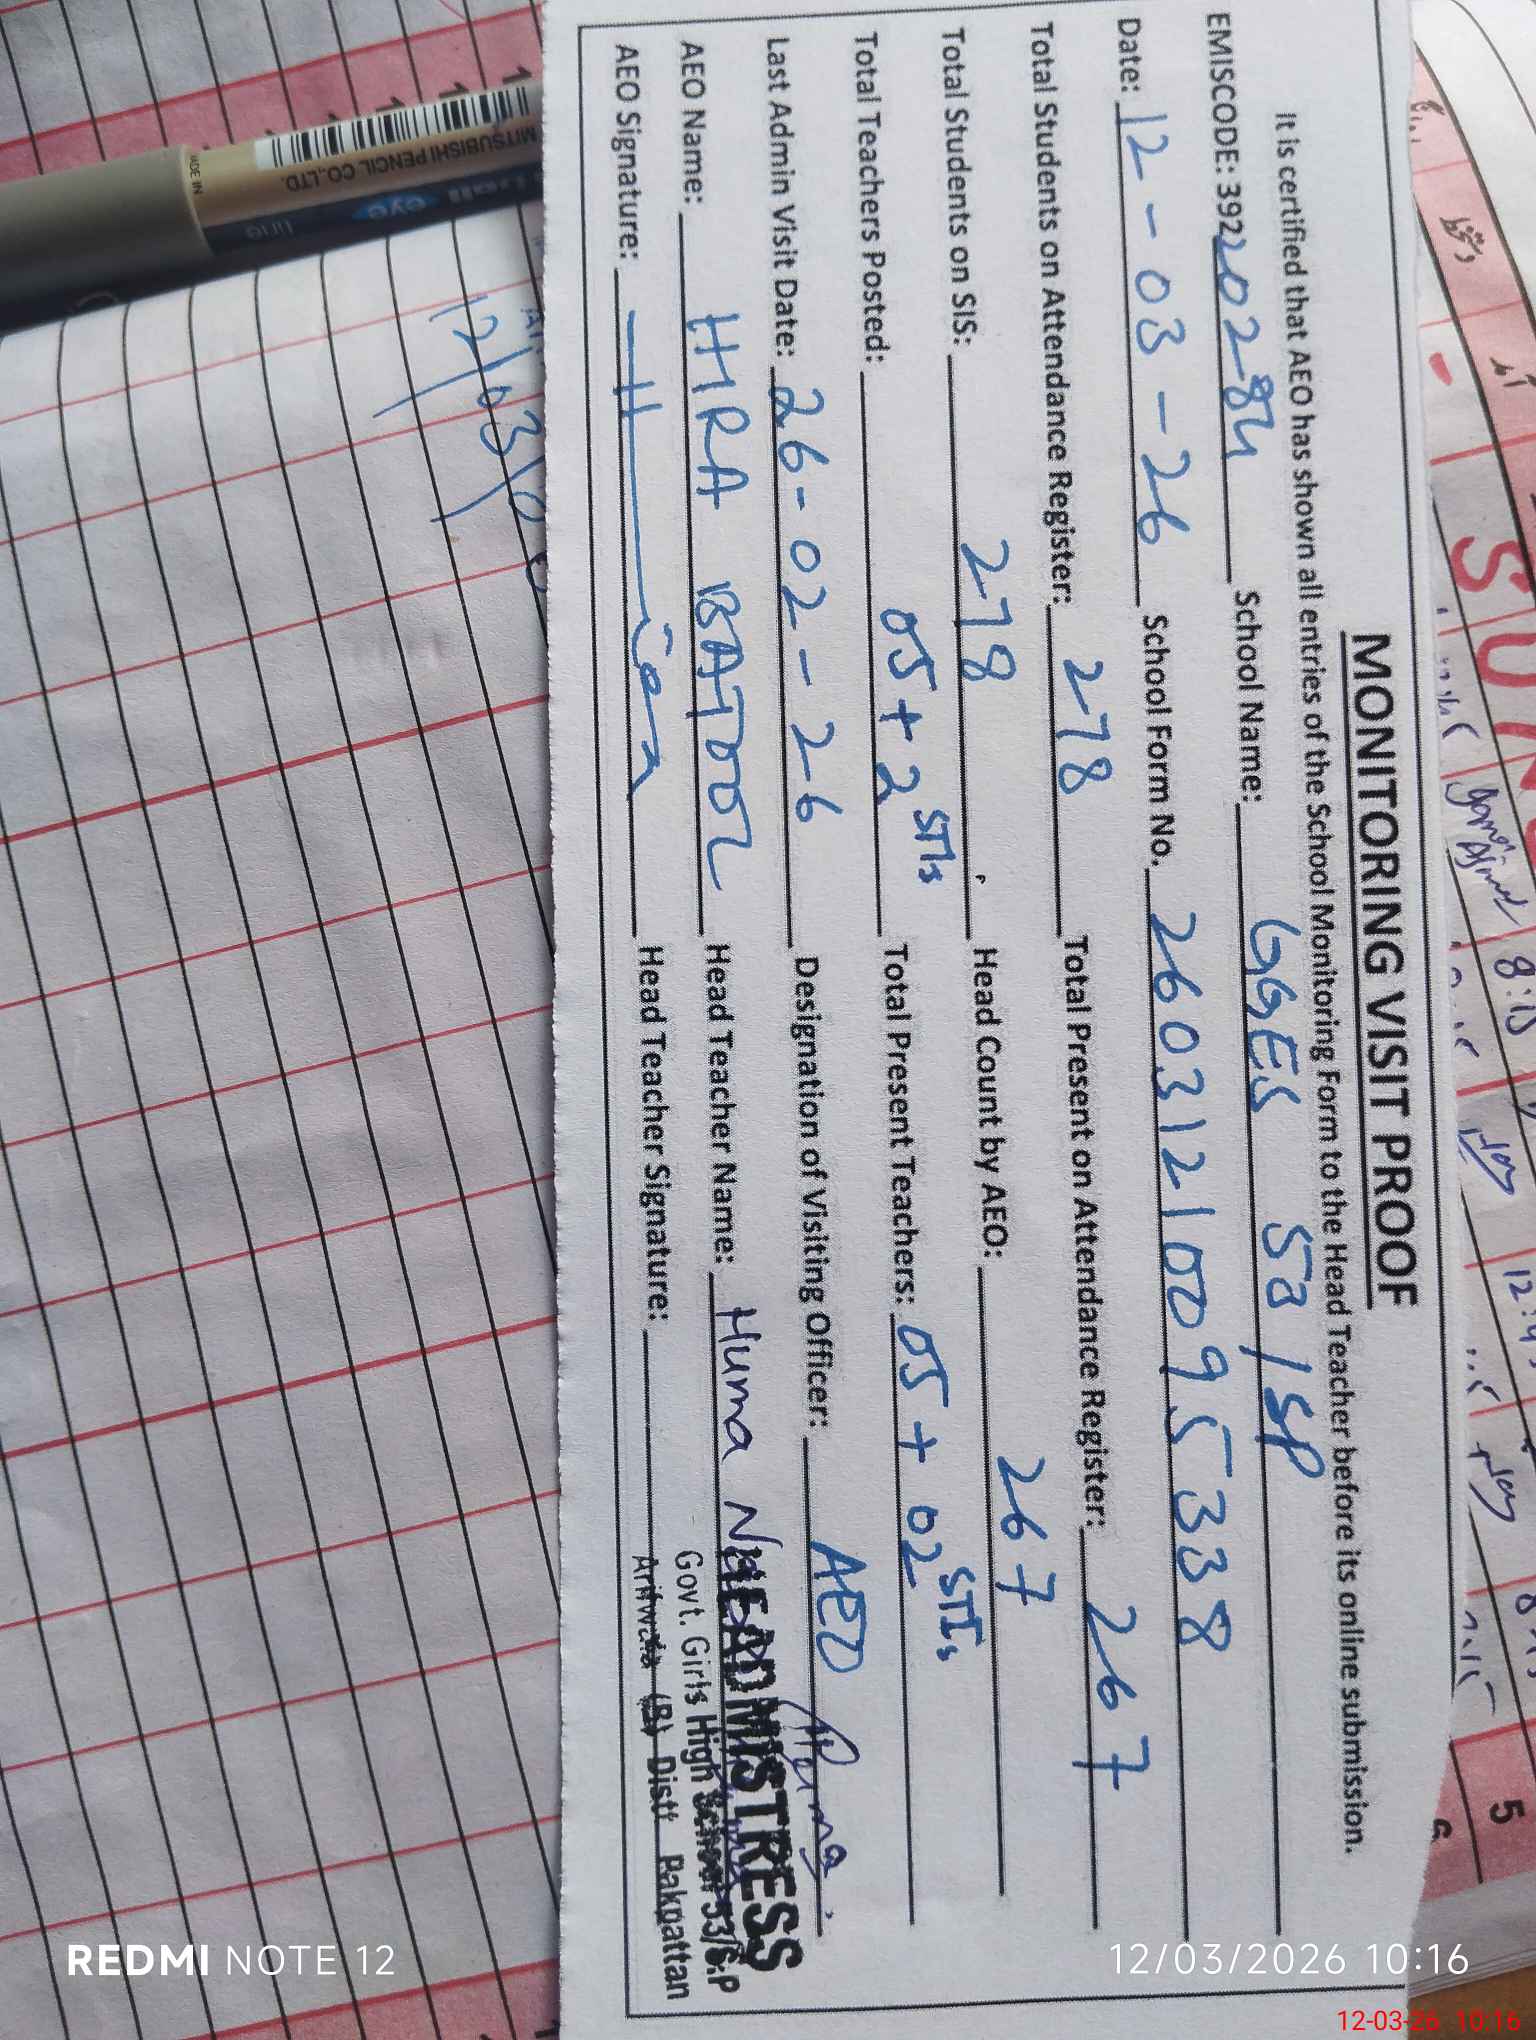 MONITORING VISIT PROOF
It is certified that AEO has shown all entries of the School Monitoring Form to the Head Teacher before its online submission.
EMISCODE: 39220284 School Name: GGES 53/SP
Date: 12-03-26 School Form No. 26031210095338
Total Students on Attendance Register: 278 Total Present on Attendance Register: 267
Total Students on SIS: 278 Head Count by AEO: 267
Total Teachers Posted: 05+2 STIs Total Present Teachers: 05+02 STIs
Last Admin Visit Date: 26-02-26 Designation of Visiting Officer: AEO
AEO Name: HIRA BATOOL Head Teacher Name: Huma
AEO Signature: Head Teacher Signature:
HEADMISTRESS
Govt. Girls High School 53/S.P
Arifwala (B) Distt Pakpattan
12/03/
MITSUBISHI PENCIL CO.,LTD.
MADE IN
eye
line
SUN
8:15
5
6
REDMI NOTE 12
12/03/2026 10:16
12-03-26 10:16